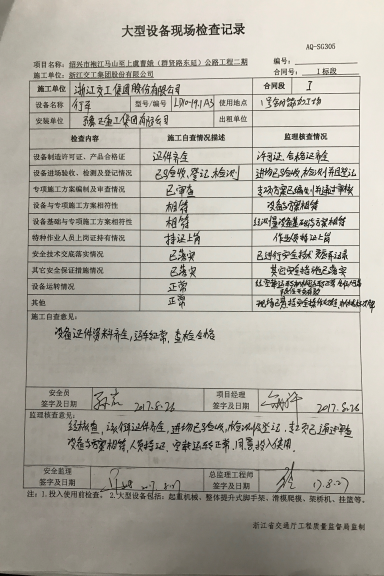 大型设备现场检查记录
AQ-SG306
项目名称：绍兴市袍江马山至上虞曹娥（群贤路东延）公路工程二期 编号：
施工单位：浙江交工集团股份有限公司 合同号： 1 标段
施工单位 浙江交工集团股份有限公司 合同段 I
设备名称 行车 型号/编号 使用地点
安装单位 出租单位
检查内容 施工自查情况描述 监理核查情况
设备制造许可证、产品合格证 证件齐全 许可证、合格证齐全
设备进场验收、检测及登记情况 已验收、登记、检测 进场已验收、检测并已登记
专项施工方案编制及审查情况 已审查 专项方案已编制并通过审核
设备与专项施工方案相符性 相符 设备与方案相符
设备基础与专项施工方案相符性 相符 经核查设备基础与方案相符
特种作业人员上岗证持有情况 持证上岗 作业人员持证上岗
安全技术交底落实情况 已落实 已进行安全技术交底并记录
其它安全保证措施情况 已落实 其它安全措施已落实
设备运转情况 正常
其他 正常
施工自查意见：
设备证件资料齐全，运转正常，查检合格
安全员 项目经理
签字及日期 2017.8.26 签字及日期 2017.8.26
监理核查意见：
经核查，该行车证件齐全，进场已验收，检测及登记，专项方案已通过审查
设备与方案相符，人员持证，空载运转正常，同意投入使用
安全监理 总监理工程师
签字及日期 2017.8.27 签字及日期 17.8.27
注：1.投入使用前检查。2.大型设备包括：起重机械、整体提升式脚手架、滑模爬模、架桥机、挂篮等。
浙江省交通厅工程质量监督局监制